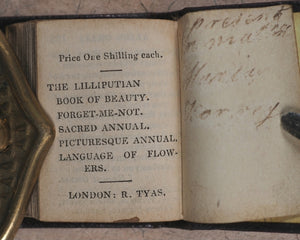 Price One Shilling each.
THE LILLIPUTIAN
BOOK OF BEAUTY.
FORGET-ME-NOT.
SACRED ANNUAL.
PICTURESQUE ANNUAL.
LANGUAGE OF FLOW-
ERS.
LONDON: R. TYAS.
present
Harvey